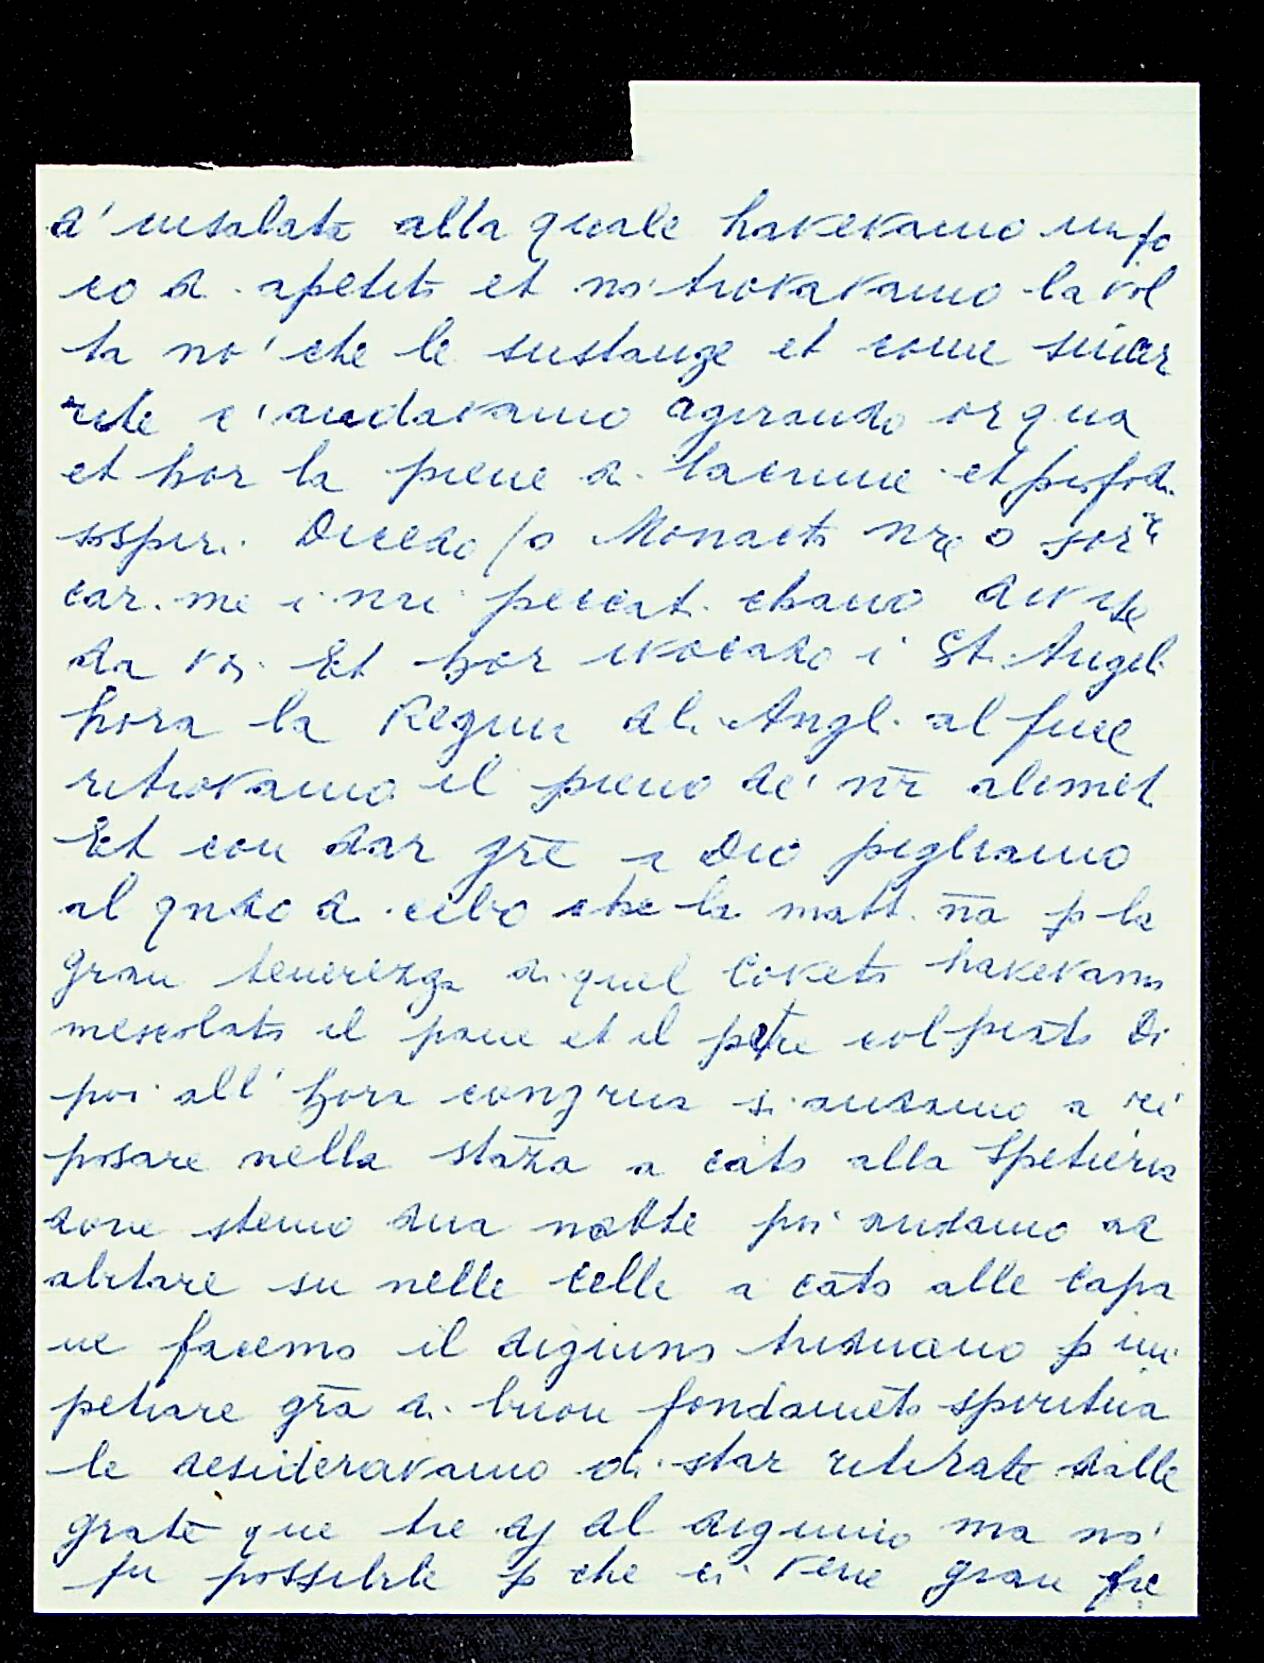 d' insalata alla quale havevamo un po
co d. apetito et no' trovavamo la vol
ta no' che le sustanze et come smar
rite c' andavamo agirando or qua
et hor la piene d. lacrime et profod.
sospiri. Dicedo /o Monaeto nro o sor.e
car.me i nri peccat. chano divise
da voi. Et hor ivocado i St. Angel.
hora la Regina dl. Angl. al fine
ritrovamo il pieno de' nri alimet.
Et con dar gre a Dio pigliamo
al qndo d. cibo che la matt.na p la
gran tenerezza d. quel Coveto havevamo
mescolato il pane et il pete col piato Di
poi all' hora congrua si andamo a ri
posare nella staza a cato alla Spetieria
dove stemo dua notte poi andamo ad
abitare su nelle celle a cato alle Capa
ne facemo il digiuno triduano p im
petrare gra d. buon fondameto spiritua
le desideravamo di star ritirate dalle
grate que tre dj dl digiunio ma no'
fu possibile p che ci vene gran fre